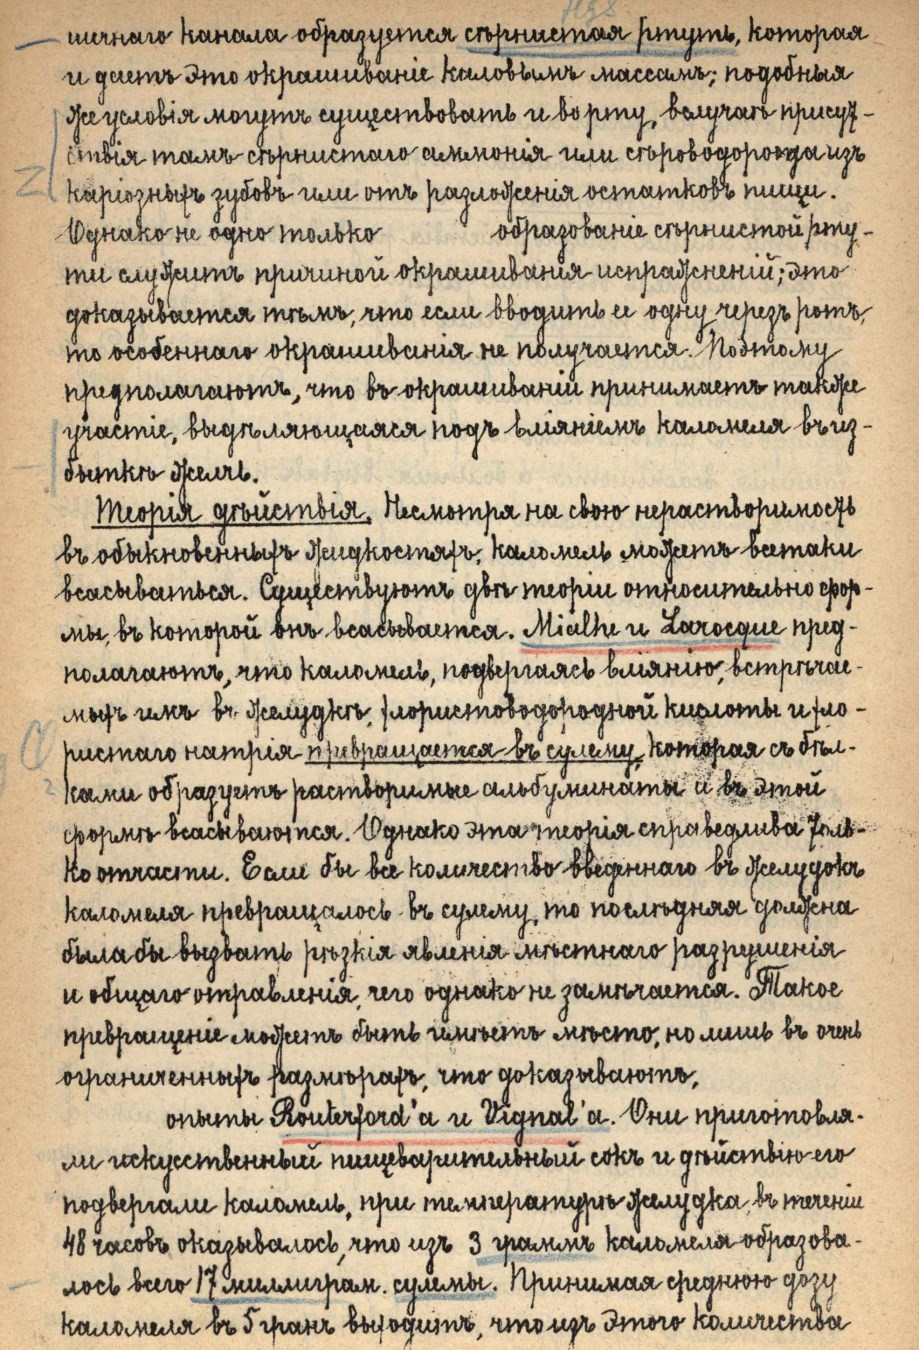 HgS
шечнаго канала образуется сѣрнистая ртуть, которая
и даетъ это окрашиваніе каловымъ массамъ; подобныя
же условія могутъ существовать и во рту, вслучаѣ присут-
ствія тамъ сѣрнистаго аммонія или сѣроводорода изъ
каріозныхъ зубовъ или отъ разложенія остатковъ пищи.
Однако не одно только образованіе сѣрнистой рту-
ти служитъ причиной окрашиванія испражненій; это
доказывается тѣмъ, что если вводить ее одну черезъ ротъ,
то особеннаго окрашиванія не получается. Поэтому
предполагаютъ, что въ окрашиваніи принимаетъ также
участіе, выдѣляющаяся подъ вліяніемъ каломеля въ из-
быткѣ желчь.
Теорія дѣйствія. Несмотря на свою нерастворимость
въ обыкновенныхъ жидкостяхъ, каломель можетъ всетаки
всасываться. Существуютъ двѣ теоріи относительно фор-
мы, въ которой онъ всасывается. Mialhe и Larocque пред-
полагаютъ, что каломель, подвергаясь вліянію, встрѣчае-
мыхъ имъ въ желудкѣ, хлористоводородной кислоты и хло-
ристаго натрія превращается въ сулему, которая съ бѣл-
ками образуетъ растворимые альбуминаты и въ этой
формѣ всасываются. Однако эта теорія справедлива толь-
ко отчасти. Если бы все количество введеннаго въ желудокъ
каломеля превращалось въ сулему, то послѣдняя должна
была бы вызвать рѣзкія явленія мѣстнаго разрушенія
и общаго отравленія, чего однако не замѣчается. Такое
превращеніе можетъ быть имѣетъ мѣсто, но лишь въ очень
ограниченныхъ размѣрахъ, что доказываютъ,
опыты Routerford'а и Vignal'а. Они приготовля-
ли искусственный пищеварительный сокъ и дѣйствію его
подвергали каломель, при температурѣ желудка, въ теченіи
48 часовъ оказывалось, что изъ 3 граммъ каломеля образова-
лось всего 17 миллиграм. сулемы. Принимая среднюю дозу
каломеля въ 5 гранъ выходитъ, что изъ этого количества